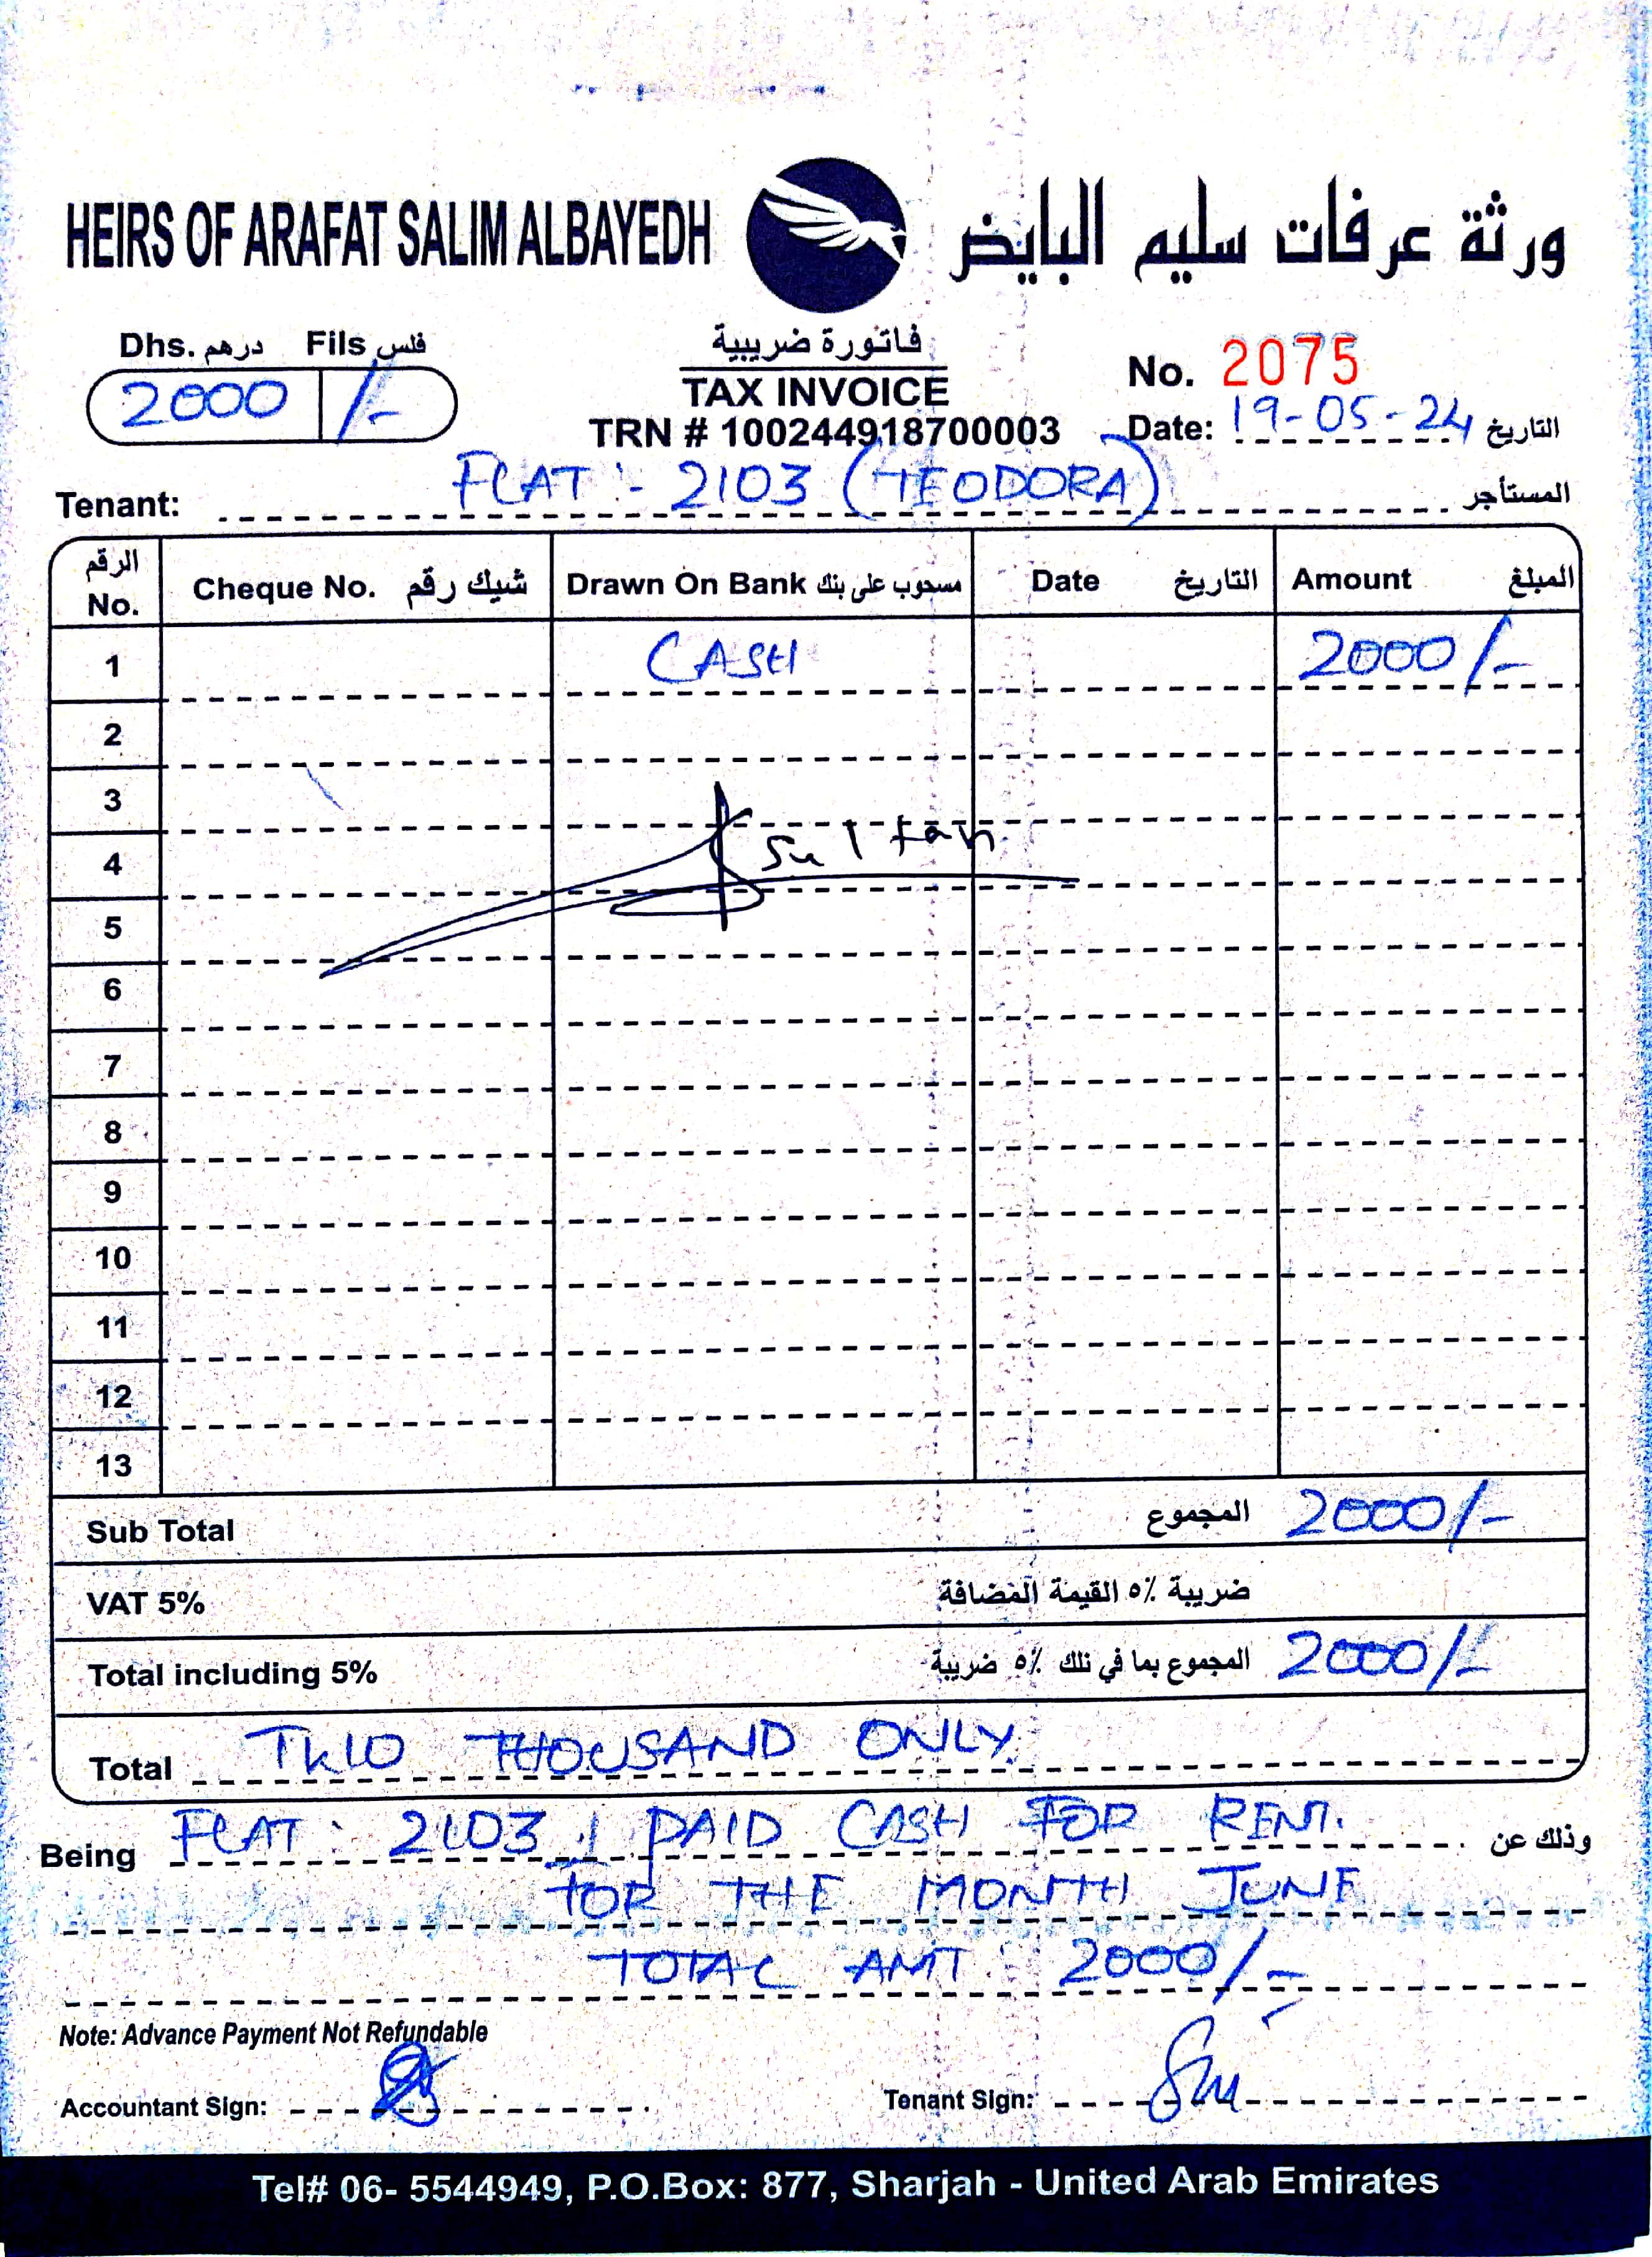 HEIRS OF ARAFAT SALIM ALBAYEDH ورثة عرفات سليم البايض
Dhs. درهم Fils فلس
2000 /-
فاتورة ضريبية
TAX INVOICE
TRN # 100244918700003
No. 2075
Date: 19-05-24 التاريخ
Tenant: FLAT :- 2103 (TEODORA) المستأجر
الرقم No. Cheque No. شيك رقم Drawn On Bank مسحوب على بنك Date التاريخ Amount المبلغ
1 CASH 2000/-
2
3
4 Sultan
5
6
7
8
9
10
11
12
13
Sub Total المجموع 2000/-
VAT 5% ضريبة ٥٪ القيمة المضافة
Total including 5% المجموع بما في تلك ٥٪ ضريبة 2000/-
Total TWO THOUSAND ONLY.
Being FLAT : 2103 PAID CASH FOR RENT. وذلك عن
FOR THE MONTH JUNE
TOTAL AMT : 2000/-
Note: Advance Payment Not Refundable
Accountant Sign: Tenant Sign:
Tel# 06- 5544949, P.O.Box: 877, Sharjah - United Arab Emirates